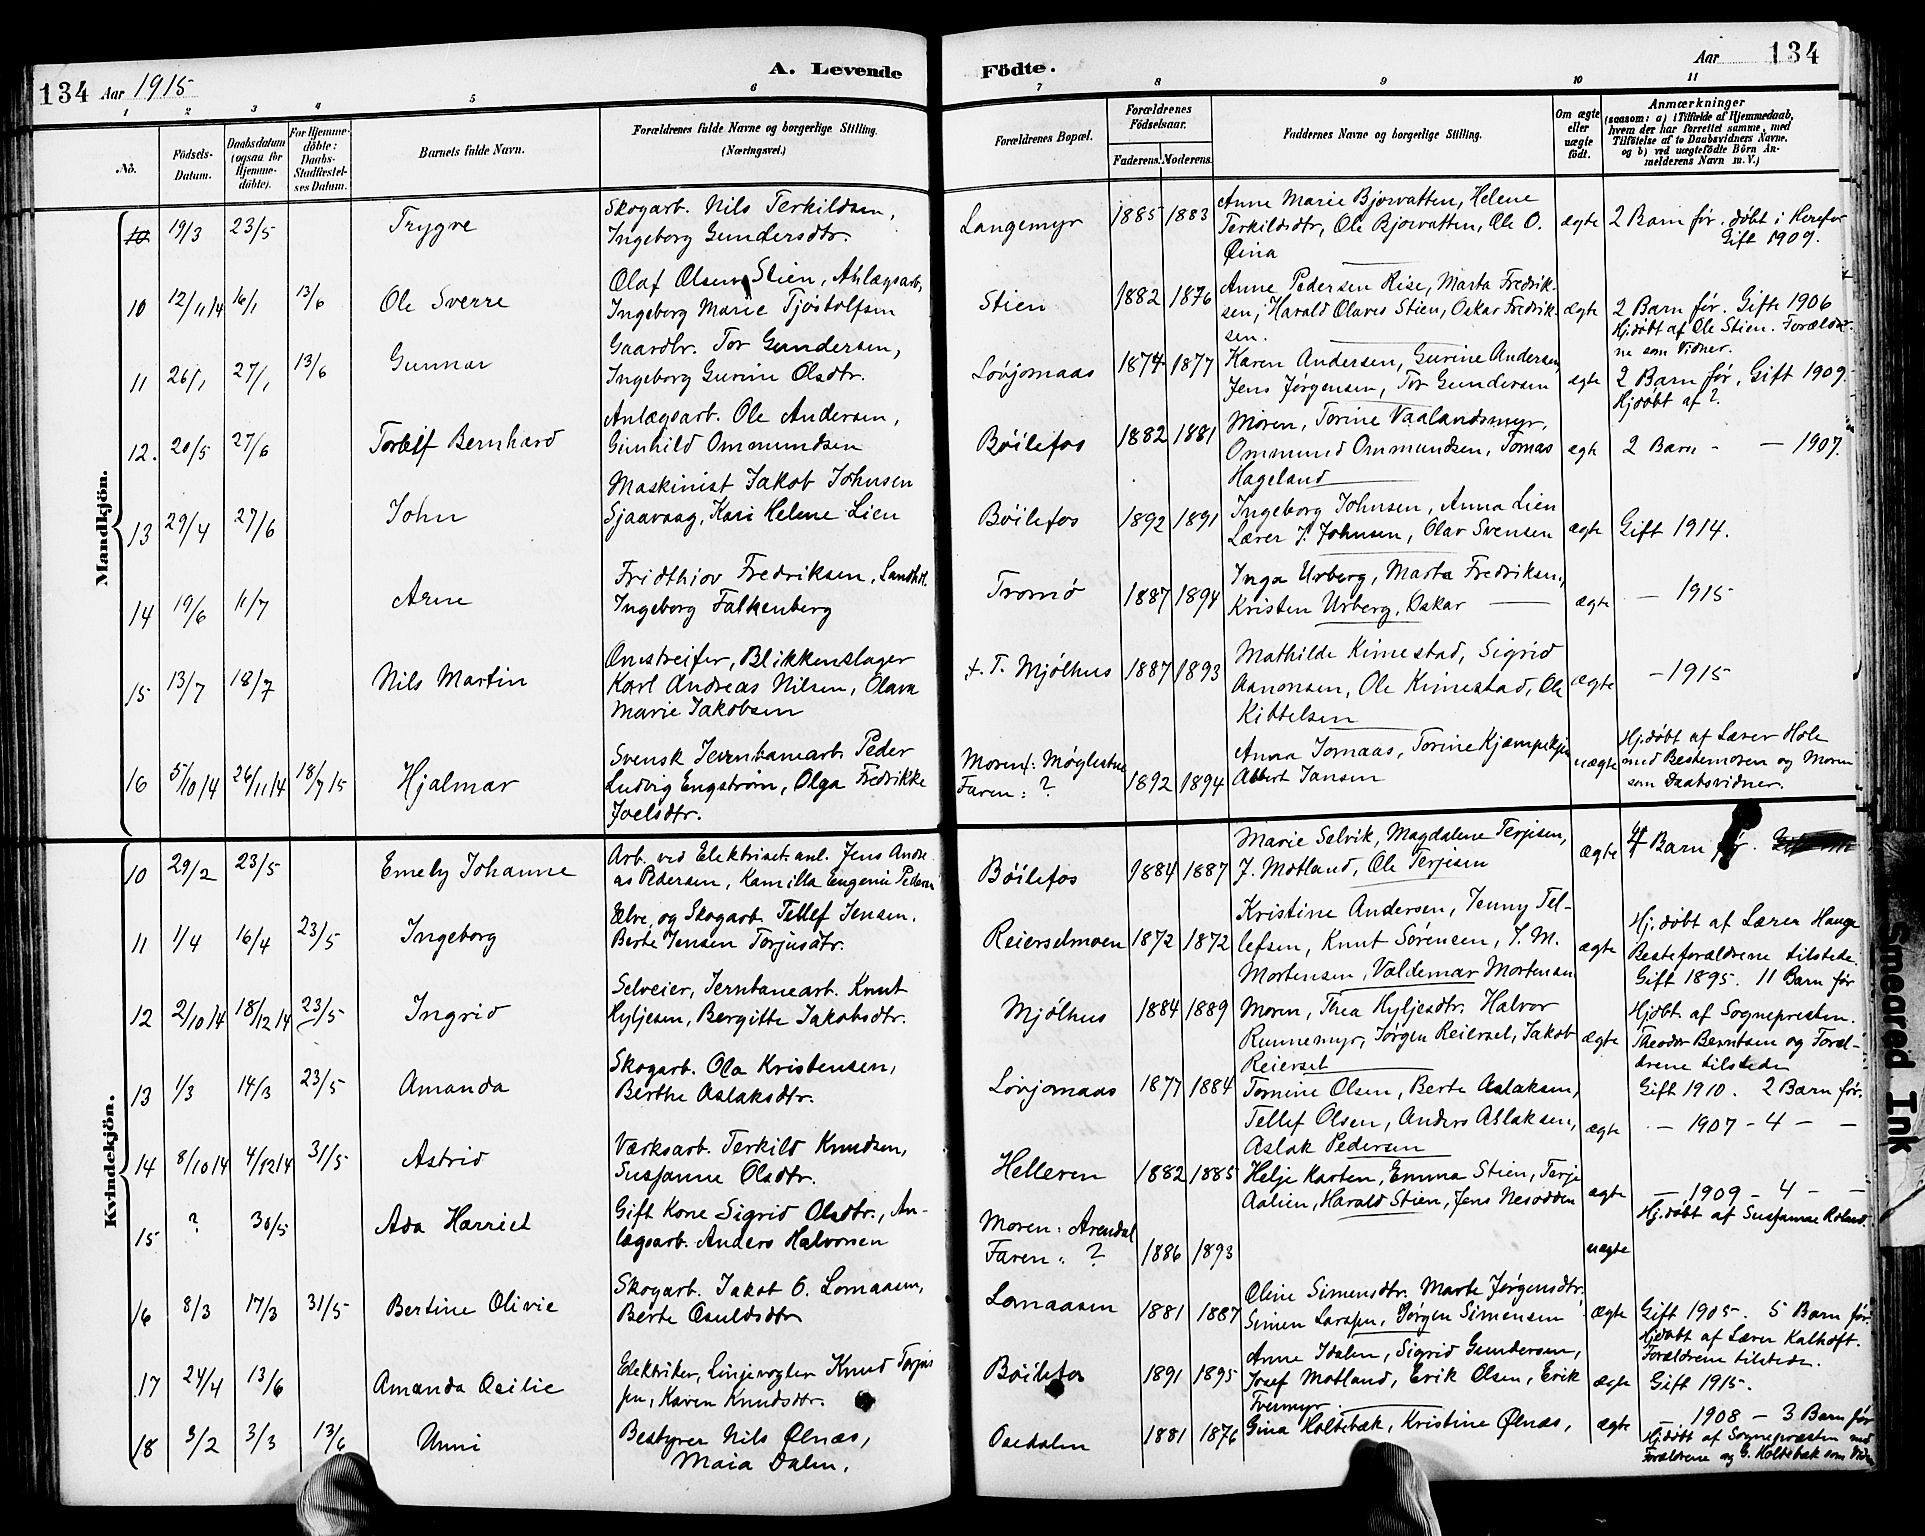 134 Aar 1915
A. Levende
1 2 3 4 5 6
No.
Födsels-Datum.
Daabsdatum (ogsaa for Hjemmedöbte).
For Hjemmedöbte: Daabs-Stadfæstelses Datum.
Barnets fulde Navn.
Forældrenes fulde Navne og borgerlige Stilling.
(Næringsvei.)
Födte.
Aar 134
7 8 9 10 11
Forældrenes Bopæl.
Forældrenes Födselsaar.
Faderens. Moderens.
Faddernes Navne og borgerlige Stilling.
Om ægte eller uægte født.
Anmærkninger
(saasom: a) i Tilfælde af Hjemmedaab,
hvem der har forrettet samme, med
Tilföielse af to Daabsvidners Navne.
og b) ved uægtefödte Börn An-
melderens Navn m. V.)
Mandkjön.
10 19/3 23/5 Trygve
Skogarb. Nils Terkildsen,
Ingeborg Gundersdtr.
Langemyr 1885 1883
Anne Marie Bjorvatten, Helene
Terkildsdtr, Ole Bjorvatten, Ole O.
Øina
ægte
2 Barn før. døbt i Herefos
Gift 1909.
10 12/11 14 16/1 13/6 Ole Sverre
Olaf Olsen Stien, Anlægsarb,
Ingeborg Marie Tjøstolfsen
Stien 1882 1876
Anne Pedersen Rise, Marta Fredrik-
sen, Harald Olaves Stien, Oskar Fredrik-
sen.
ægte
2 Barn før. Gifte 1906
Hj.døbt af Ole Stien. Forældre-
ne som Vidner.
11 26/1 27/1 13/6 Gunnar
Gaardbr. Tor Gundersen,
Ingeborg Gurine Olsdtr.
Løvjomaas 1874 1877
Karen Andersen, Gurine Andersen
Jens Jørgensen, Tor Gundersen
ægte
2 Barn før, Gift 1909
Hjdøbt af ?
12. 20/5 27/6 Torleif Bernhard
Anlægsarb. Ole Andersen,
Gunhild Ommundsen
Bøilefos 1882 1881
Moren, Torine Vaalandsmyr,
Ommund Ommundsen, Tomas
Hageland
ægt
2 Barn - — 1907.
13 29/4 27/6 John
Maskinist Jakob Johnsen
Sjaavaag, Kari Helene Lien
Bøilefos 1892 1891
Ingeborg Johnsen, Anna Lien
Lærer J. Johnsen, Olav Svensen
ægte
Gift 1914.
14 19/6 11/7 Arne
Fridthiov Fredriksen, Landh.
Ingeborg Falkenberg
Tromø 1887 1894
Inga Urberg, Marta Fredriksen,
Kristen Urberg, Oskar —
ægte
— 1915
15 13/7 18/7 Nils Martin
Omstreifer, Blikkenslager
Karl Andreas Nilsen, Olava
Marie Jakobsen
f. T. Mjølhus 1887 1893
Mathilde Kimestad, Sigrid
Aanonsen, Ole Kimestad, Ole
Kittelsen
ægte
— 1915
16 5/10 14 26/11 14 18/7 15 Hjalmar
Svensk Jernbanearb. Peder
Ludvig Engstrøm, Olga Fredrikke
Joelsdtr.
Moren: Møglestue
Faren: ? 1892 1894
Anna Jomaas, Torine Kjæmpekjen
Albert Jansen
uægte
Hj.døbt af Lærer Hole
med Bestemoren og Moren
som Daabsvidner.
Kvindekjön.
10 29/2 23/5 Emely Johanne
Arb. ved Elektriset. anl. Jens Andre-
as Pedersen, Kamilla Eugenie Pedersen
Bøilefos 1884 1887
Marie Selvik, Magdalene Terjesen,
J. Motland, Ole Terjesen
ægte
4 Barn før.
11 1/4 16/4 23/5 Ingeborg
Elve, og Skogarb. Tellef Jensen,
Berte Jensen Torjusdtr.
Reierselmoen 1872 1872
Kristine Andersen, Jenny Tel-
lefsen, Knut Sørensen, J. M.
Mortensen, Valdemar Mortensen
ægte
Hj.døbt af Lærer Hauge
Besteforældrene tilstede.
Gift 1895. 11 Barn før
12 2/10 14 18/12 14 23/5 Ingrid
Selveier, Jernbanearb. Knut
Kyljesen, Bergitte Jakobsdtr.
Mjølhus 1884 1889
Moren, Thea Kyljesdtr. Halvor
Runnemyr, Jørgen Reiersel, Jakob
Reiersel
ægte
Hjdøbt af Sognepresten.
Theodor Berntsen og Foræl-
drene tilstede
Gift 1910. 2 Barn før.
13 1/3 14/3 23/5 Amanda
Skogarb. Ola Kristensen,
Berthe Aslaksdtr.
Løvjomaas 1877 1884
Tomine Olsen, Berte Aslaksen,
Tellef Olsen, Anders Aslaksen,
Aslak Pedersen
ægte
— 1907 - 4 — —
14 8/10 14 4/12 14 31/5 Astrid
Værksarb. Terkild Knudsen,
Susanne Olsdtr.
Helleren 1882 1885
Helje Karten, Emma Stien, Terje
Aalien, Harald Stien, Jens Nesodden
ægte
— 1909 - 4 — —
Hj.døbt af Susanne Roland.
15 ? 30/5 Ada Harriet
Gift Kone Sigrid Olsdtr., An-
lægsarb. Anders Halvorsen
Moren: Arendal
Faren: ? 1886 1893
uægte
16 8/3 17/3 31/5 Bertine Olivie
Skogarb. Jakob O. Lomaasen,
Berte Osuldsdtr
Lomaasen 1881 1887
Oline Simensdtr. Marte Jørgensdtr.
Simen Larssen, Jørgen Simensen
ægte
Gift 1905. 5 Barn før
Hjdøbt af Lærer Kalhoft.
Forældrene tilstede.
17 24/4 13/6 Amanda Osilie
Elektriker, Linjevogter Knud Torjus
sen, Karen Knudsdtr.
Bøilefos 1891 1895
Anne Idalen, Sigrid Gundersen,
Josef Motland, Erik Olsen, Erik
Tveimyr
ægte
Gift 1915.
18 3/2 3/3 13/6 Unni
Bestyrer Nils Ølnæs,
Maia Dalen.
Osedalen 1881 1876
Gina Holtebæk, Kristine Ølnæs,
ægte
— 1908 - 3 Barn før
Hj.døbt af Sognepræsten med
Forældrene og G. Holtebæk som Vidn
Smeared Ink